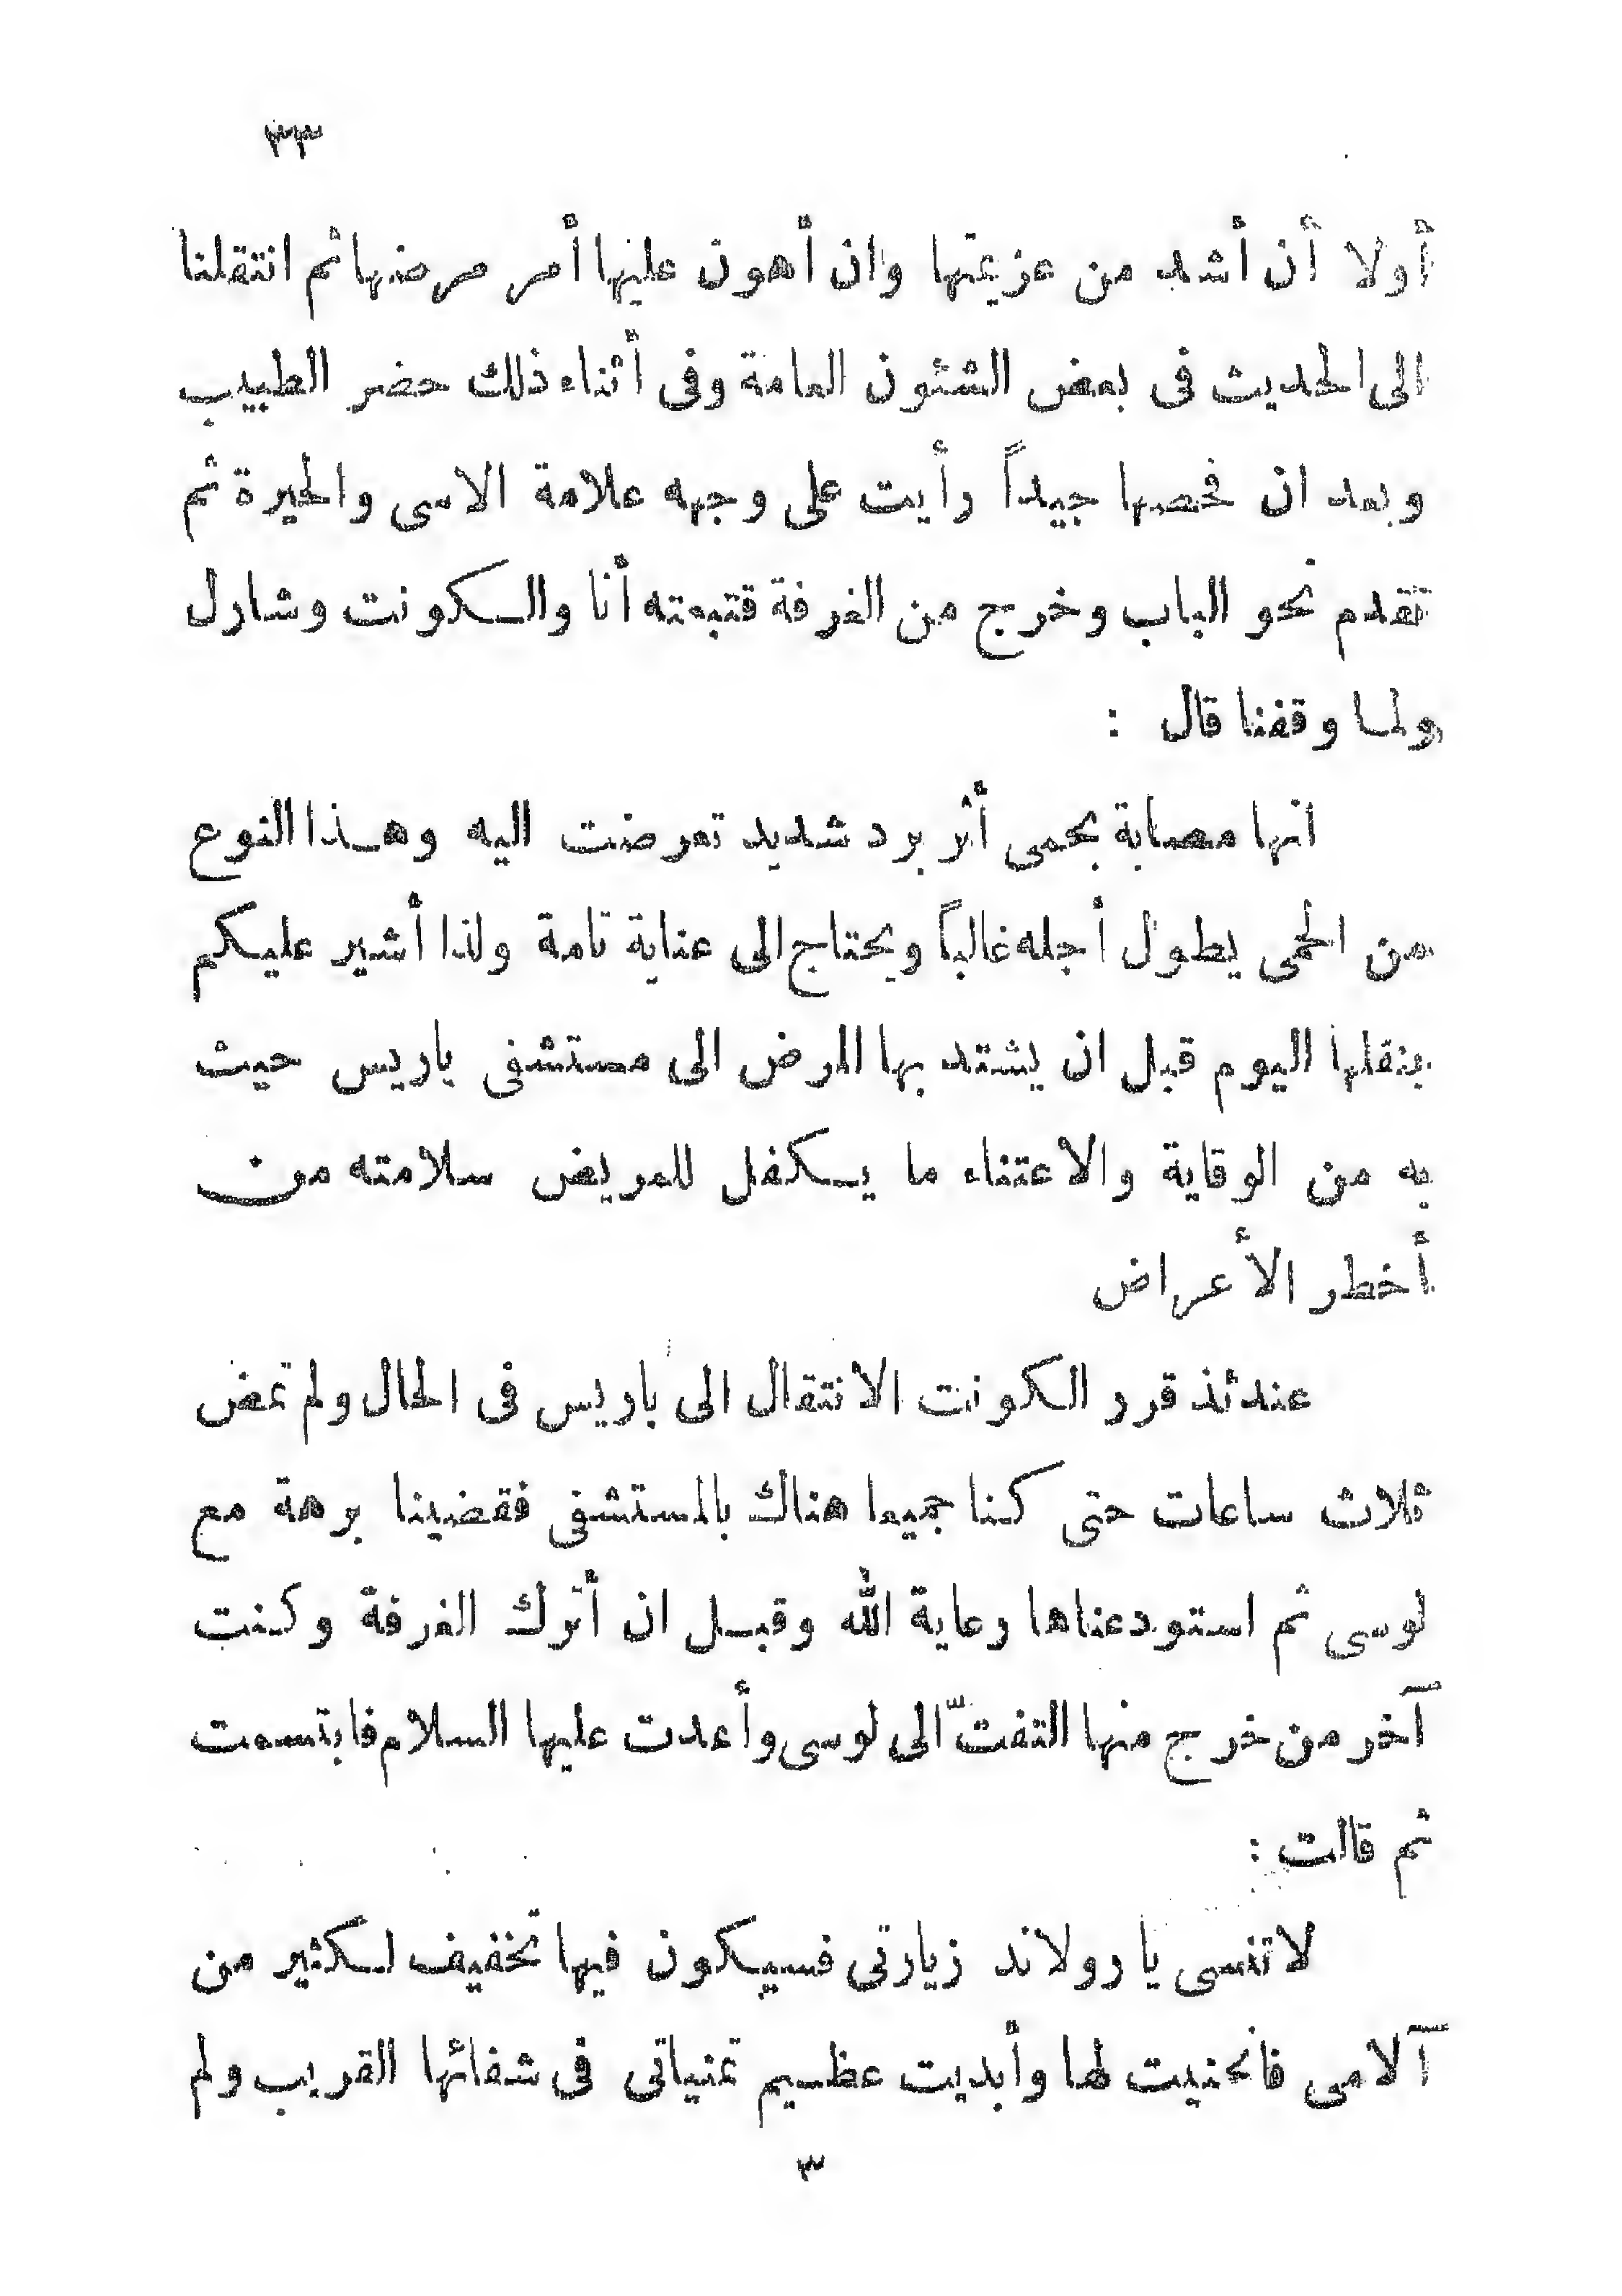 ٣٣
أولا أن أشد من عزيمتها وان أهون عليها أمر مرضها ثم انتقلنا
الى الحديث فى بعض الشئون العامة وفى أثناء ذلك حضر الطبيب
وبعد ان فحصها جيداً رأيت على وجهه علامة الاسى والحيرة ثم
تقدم نحو الباب وخرج من الغرفة فتبعته أنا والكونت وشارل
ولما وقفنا قال :
انها مصابة بحمى أثر برد شديد تعرضت اليه وهذا النوع
من الحمى يطول أجله غالباً ويحتاج الى عناية تامة ولذا أشير عليكم
بنقلها اليوم قبل ان يشتد بها المرض الى مستشفى باريس حيث
به من الوقاية والاعتناء ما يكفل للمريض سلامته من
أخطر الأعراض
عندئذ قرر الكونت الانتقال الى باريس فى الحال ولم تمض
ثلاث ساعات حتى كنا جميعا هناك بالمستشفى فقضينا برهة مع
لوسى ثم استودعناها رعاية الله وقبل ان أترك الغرفة وكنت
آخر من خرج منها التفتّ الى لوسى وأعدت عليها السلام فابتسمت
ثم قالت :
لا تنسى يا رولاند زيارتى فسيكون فيها تخفيف لكثير من
آلامى فانحنيت لها وأبديت عظيم تمنياتى فى شفائها القريب ولم
٣